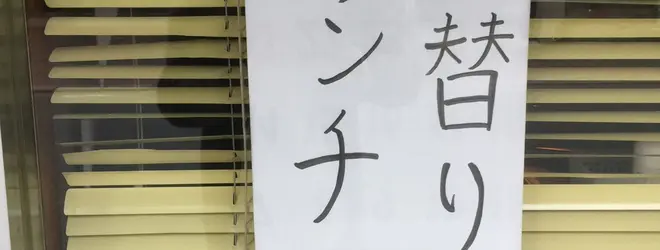 替り
ンチ